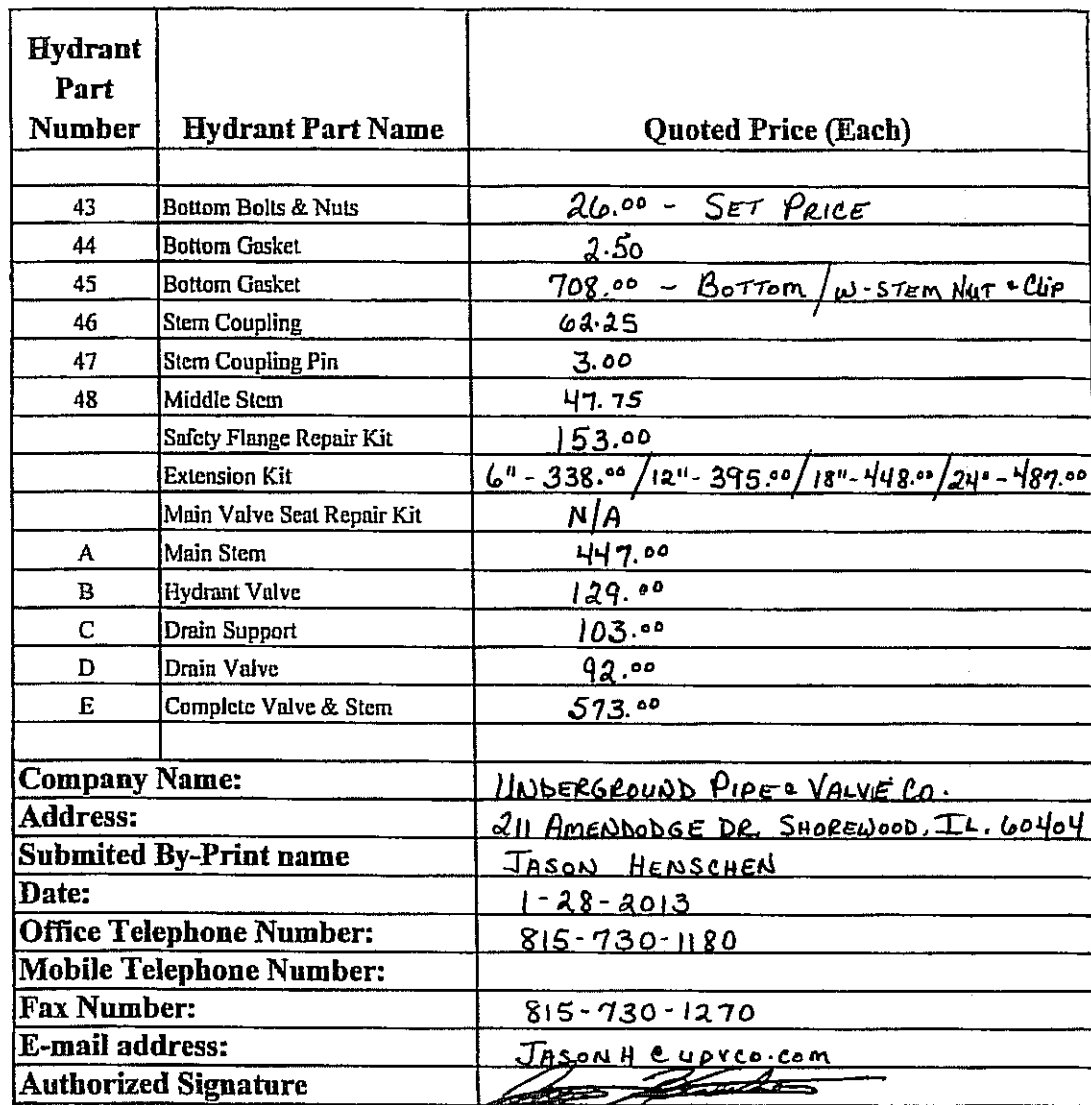 Hydrant Part Number Hydrant Part Name Quoted Price (Each)
43 Bottom Bolts & Nuts 26.00 - SET PRICE
44 Bottom Gasket 2.50
45 Bottom Gasket 708.00 - BOTTOM / W-STEM NUT & CLIP
46 Stem Coupling 62.25
47 Stem Coupling Pin 3.00
48 Middle Stem 47.75
Safety Flange Repair Kit 153.00
Extension Kit 6" - 338.00 / 12" - 395.00 / 18" - 448.00 / 24" - 487.00
Main Valve Seat Repair Kit N/A
A Main Stem 447.00
B Hydrant Valve 129.00
C Drain Support 103.00
D Drain Valve 92.00
E Complete Valve & Stem 573.00
Company Name: UNDERGROUND PIPE & VALVE CO.
Address: 211 AMENDODGE DR. SHOREWOOD, IL. 60404
Submited By-Print name JASON HENSCHEN
Date: 1-28-2013
Office Telephone Number: 815-730-1180
Mobile Telephone Number:
Fax Number: 815-730-1270
E-mail address: JASONH@UPVCO.COM
Authorized Signature